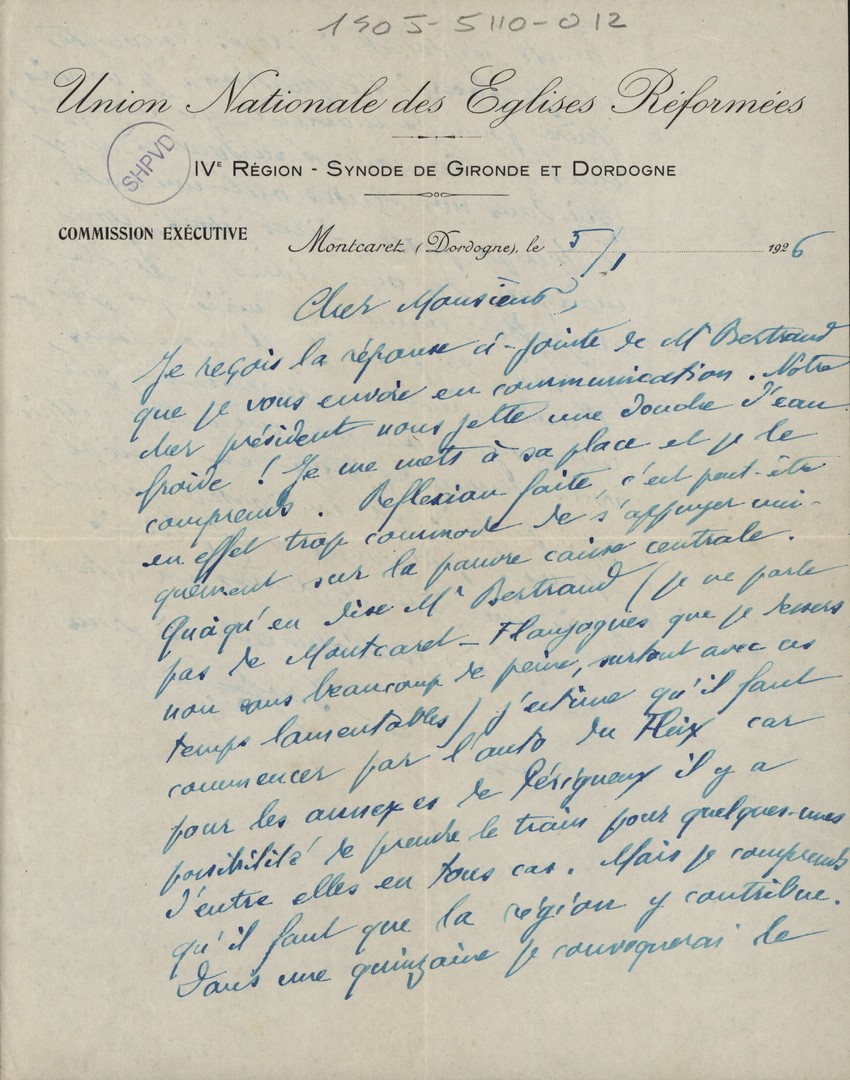 1905-5110-012
Union Nationale des Eglises Réformées
SHPVD
IVE RÉGION - SYNODE DE GIRONDE ET DORDOGNE
COMMISSION EXÉCUTIVE
Montcaret (Dordogne), le 5/1 1926
Cher Monsieur,
Je reçois la réponse ci-jointe de Mr Bertrand
que je vous envoie en communication. Notre
cher président nous jette une douche d'eau
froide ! Je me mets à sa place et je le
comprends. Reflexion faite, c'est peut-être
en effet trop commode de s'appuyer uni-
quement sur la pauvre caisse centrale.
Quoiqu'en dise Mr Bertrand (je ne parle
pas de Montcaret-Flaujagues que je dessers
non sans beaucoup de peine, surtout avec ces
temps lamentables) j'estime qu'il faut
commencer par l'auto du Fleix car
pour les annexes de Périgueux il y a
possibilité de prendre le train pour quelques-unes
d'entre elles en tous cas. Mais je comprends
qu'il faut que la région y contribue.
Dans une quinzaine je convoquerai le